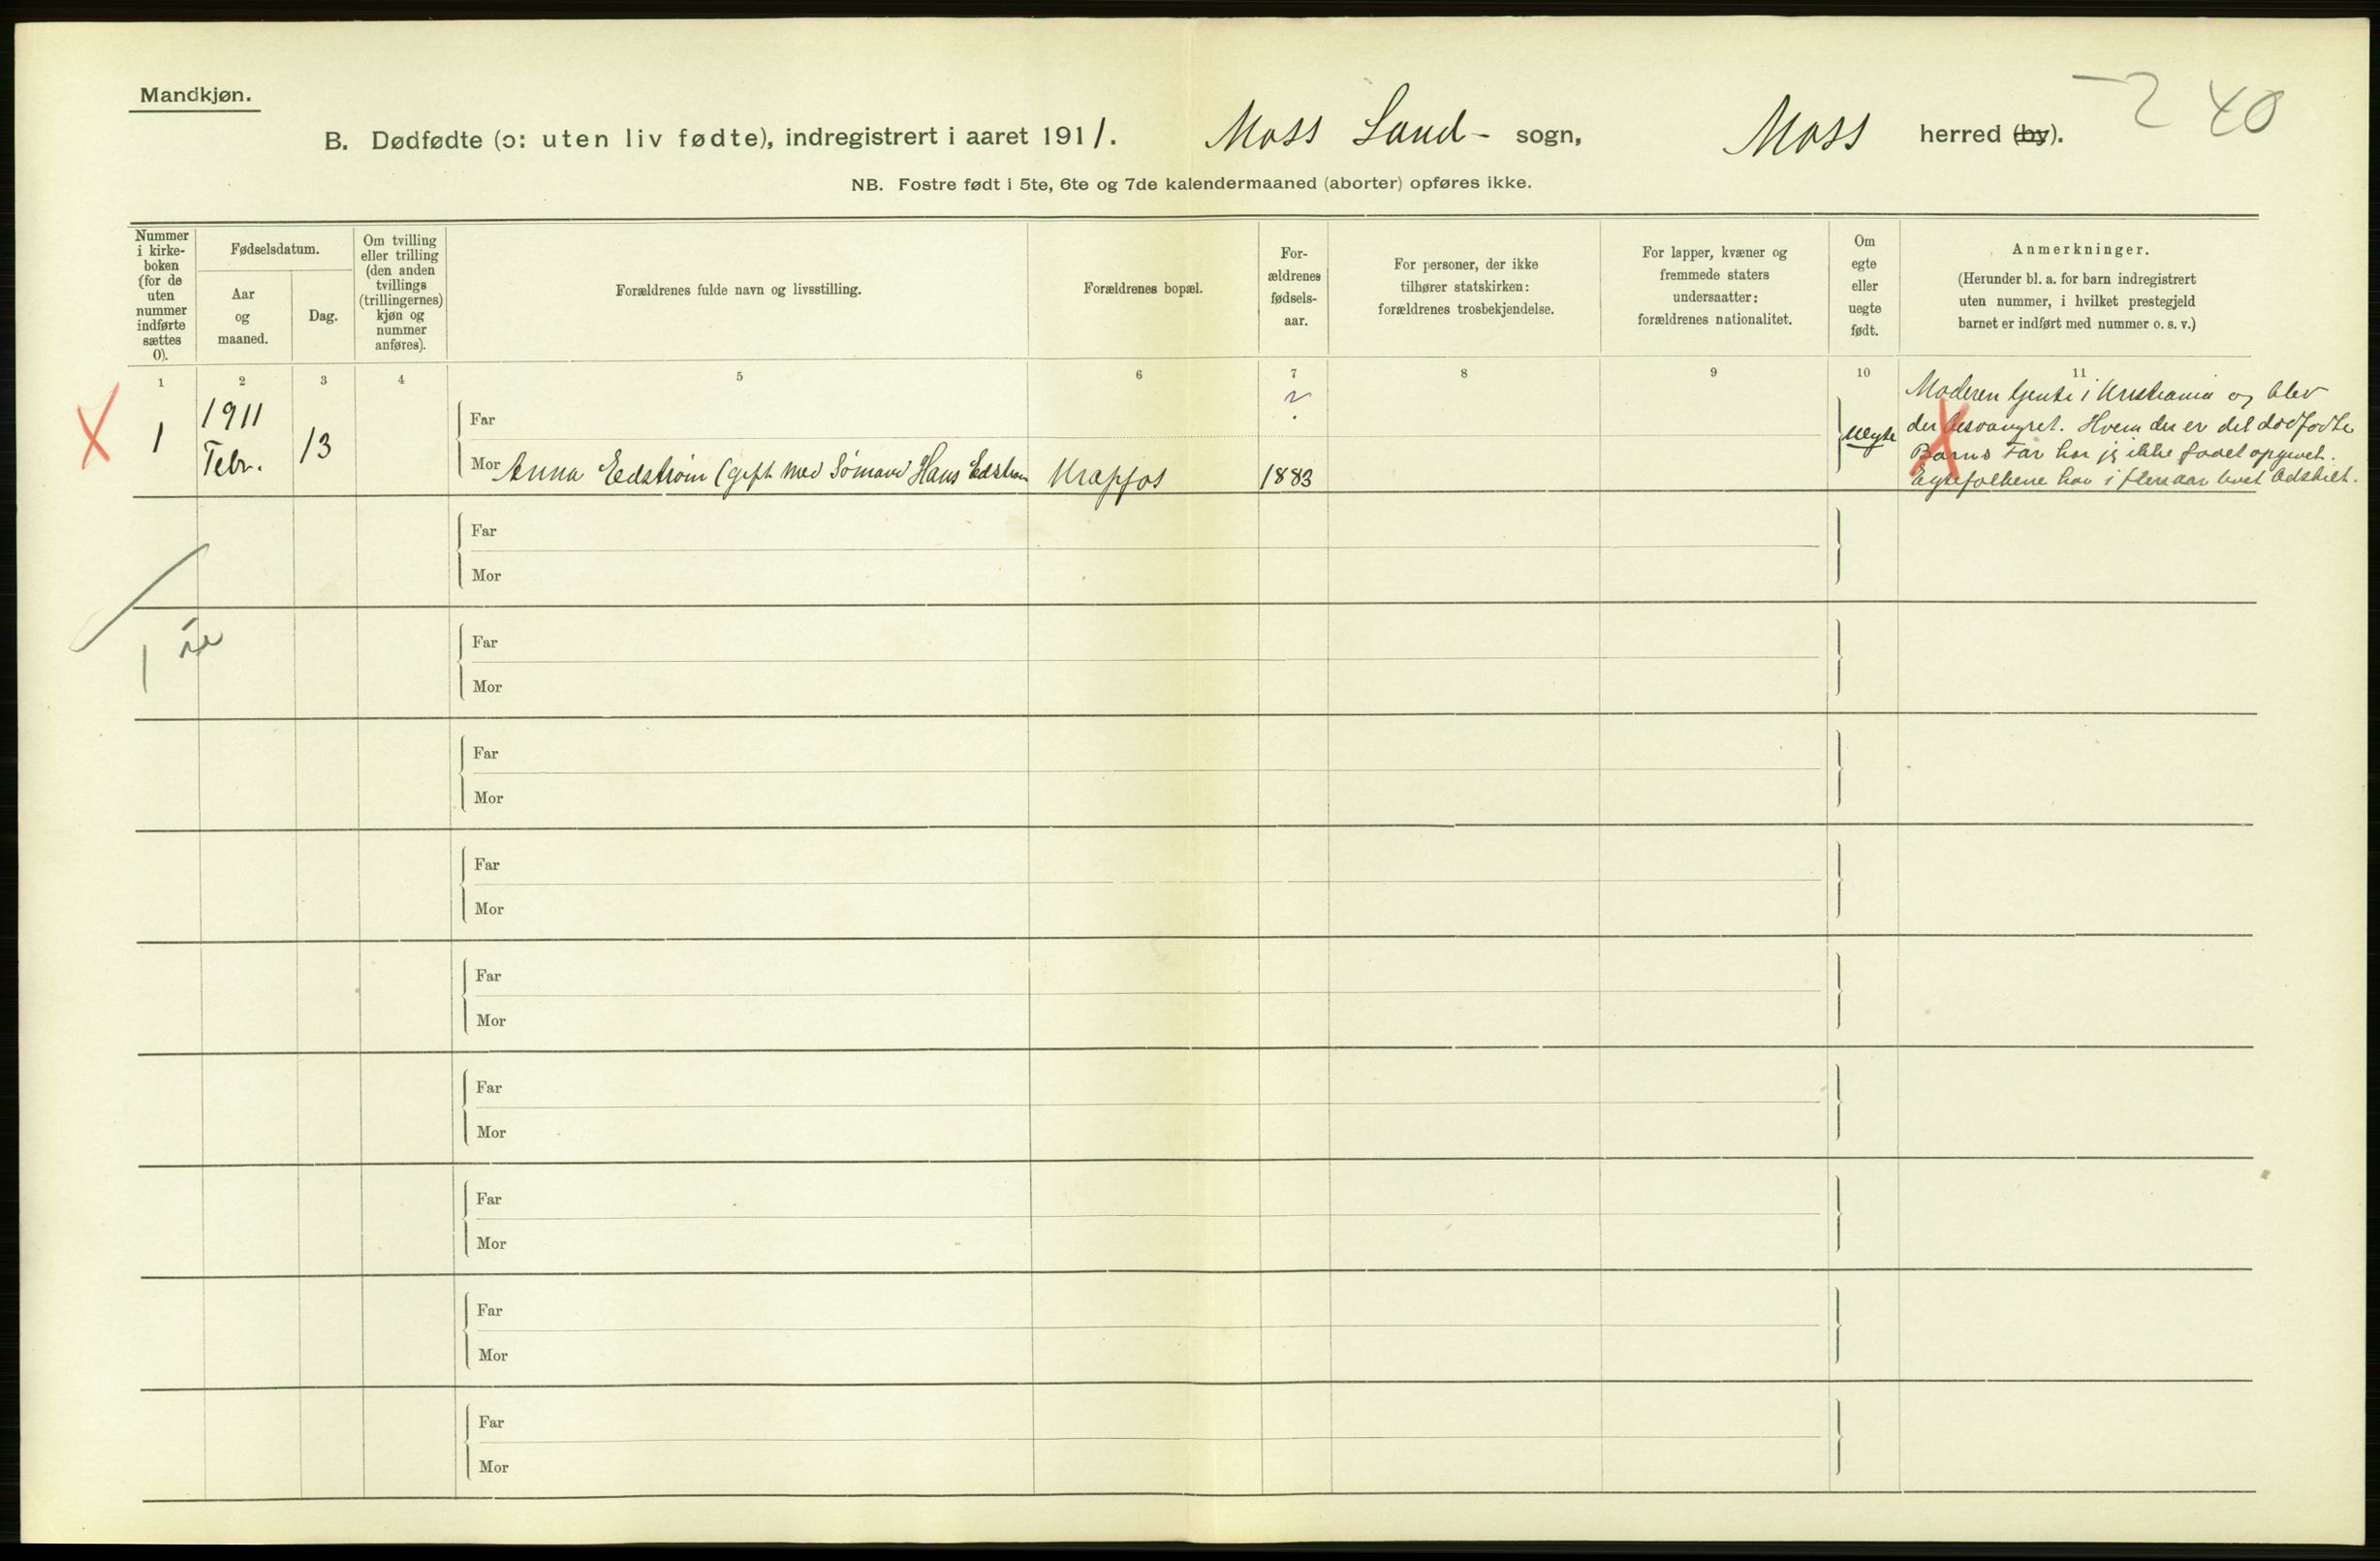 Mandkjøn.
B. Dødfødte (ɔ: uten liv fødte), indregistrert i aaret 1911. Moss Land- sogn, Moss herred (by).
-2 40
NB. Fostre født i 5te, 6te og 7de kalendermaaned (aborter) opføres ikke.
Nummer
i kirke-
boken
(for de
uten
nummer
indførte
sættes
0).
Fødselsdatum.
Aar
og
maaned.
Dag.
Om tvilling
eller trilling
(den anden
tvillings
(trillingernes)
kjøn og
nummer
anføres).
Forældrenes fulde navn og livsstilling.
Forældrenes bopæl.
For-
ældrenes
fødsels-
aar.
For personer, der ikke
tilhører statskirken:
forældrenes trosbekjendelse.
For lapper, kvæner og
fremmede staters
undersaatter:
forældrenes nationalitet.
Om
egte
eller
uegte
født.
Anmerkninger.
(Herunder bl. a. for barn indregistrert
uten nummer, i hvilket prestegjeld
barnet er indført med nummer o. s. v.)
1 2 3 4 5 6 7 8 9 10 11
X 1 1911 Febr. 13
Far ?
Mor Anna Eedstrøm (gift med Sømand Hans Edstrøm Krapfos 1883
uegte
Moderen tjente i Kristiania og blev
der besvangret. Hvem der er det dødfødte
Barns Far har jeg ikke faaet opgivet.
Egtefolkene har i flere aar levet adskilt.
Far
Mor
1
Far
Mor
Far
Mor
Far
Mor
Far
Mor
Far
Mor
Far
Mor
Far
Mor
Far
Mor